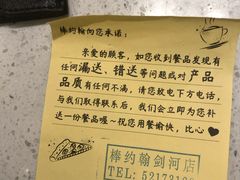 棒约翰向您承诺：
亲爱的顾客，如您收到餐品发现有
任何漏送、错送等问题或对产品
品质有任何不满，请您放电下方电话，
与我们取得联系后，我们会立即为您补
送一份餐品喔~祝您用餐愉快，比心
棒约翰剑河店
TEL: